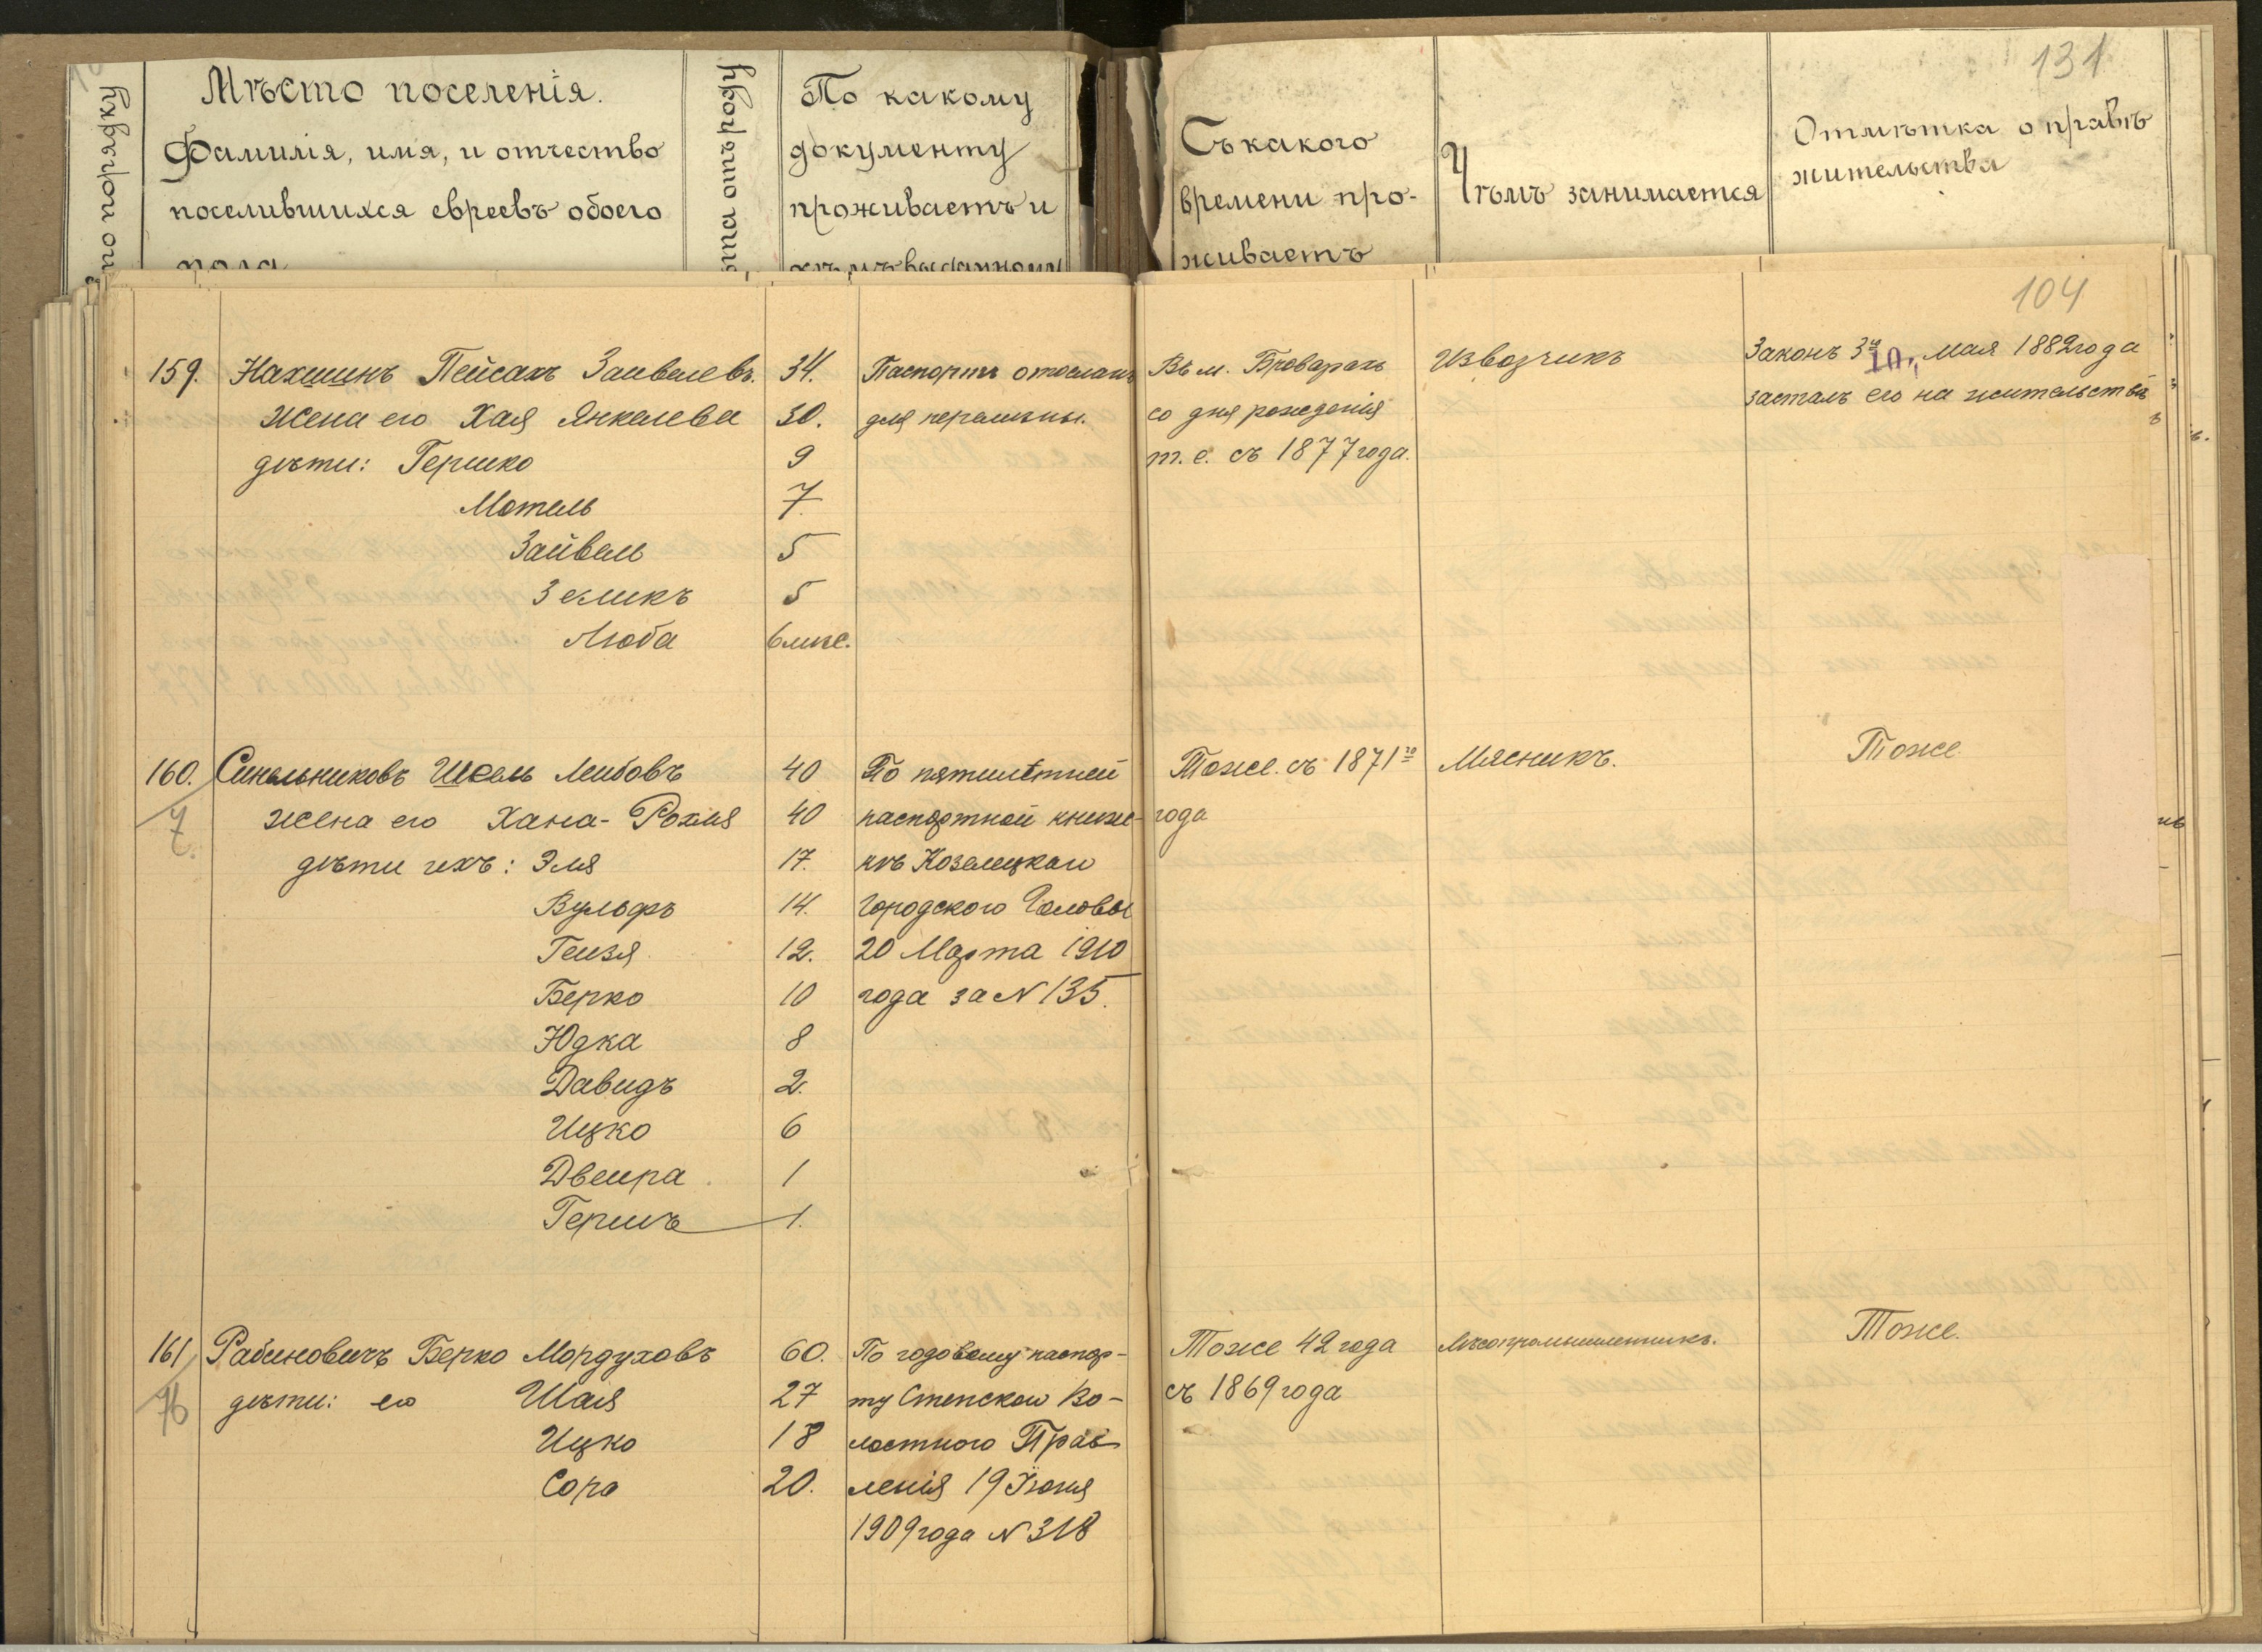 131
по порядку
Мѣсто поселенія.
Фамилія, имя, и отчество
поселившихся евреевъ обоего
пола
отъ роду
По какому
документу
проживаетъ и
кѣмъ выданному
Съ какого
времени про-
живаетъ
Чѣмъ занимается
Отмѣтка о правѣ
жительства
104
159. Нахшинъ Пейсахъ Заивелевъ. 34. Паспортъ отосланъ Въ м. Броварахъ Извозчикъ Законъ 3го мая 1882 года
жена его Хая Янкелева 30. для перемѣны. со дня рожденія засталъ его на жительствѣ
дѣти: Гершко 9 т. е. съ 1877 года.
Мотель 7
Зайвель 5
Зеликъ 5
Люба 6 мѣс.
160. Синельниковъ Шкель Лейбовъ 40 По пятилѣтней Тоже. съ 1871го Мясникъ. Тоже
7 жена его Хана-Рохля 40 паспортной книж- года
дѣти ихъ: Эля 17. кѣ Козелецкаго
Вульфъ 14. Городского Головы
Геизя 12. 20 Марта 1910
Берко 10 года за N 135.
Юдка 8
Давидъ 2.
Ицко 6
Двеира 1
Гершъ 1.
161 Рабиновичъ Берко Мордуховъ 60. По годовому паспор- Тоже 42 года Лѣсопромышленникъ. Тоже.
76 дѣти: его Шая 27 ту Стенскаго Во- съ 1869 года
Ицко 18 лостного Прав
Сора 20. ленія 19 Іюня
1909 года N 318